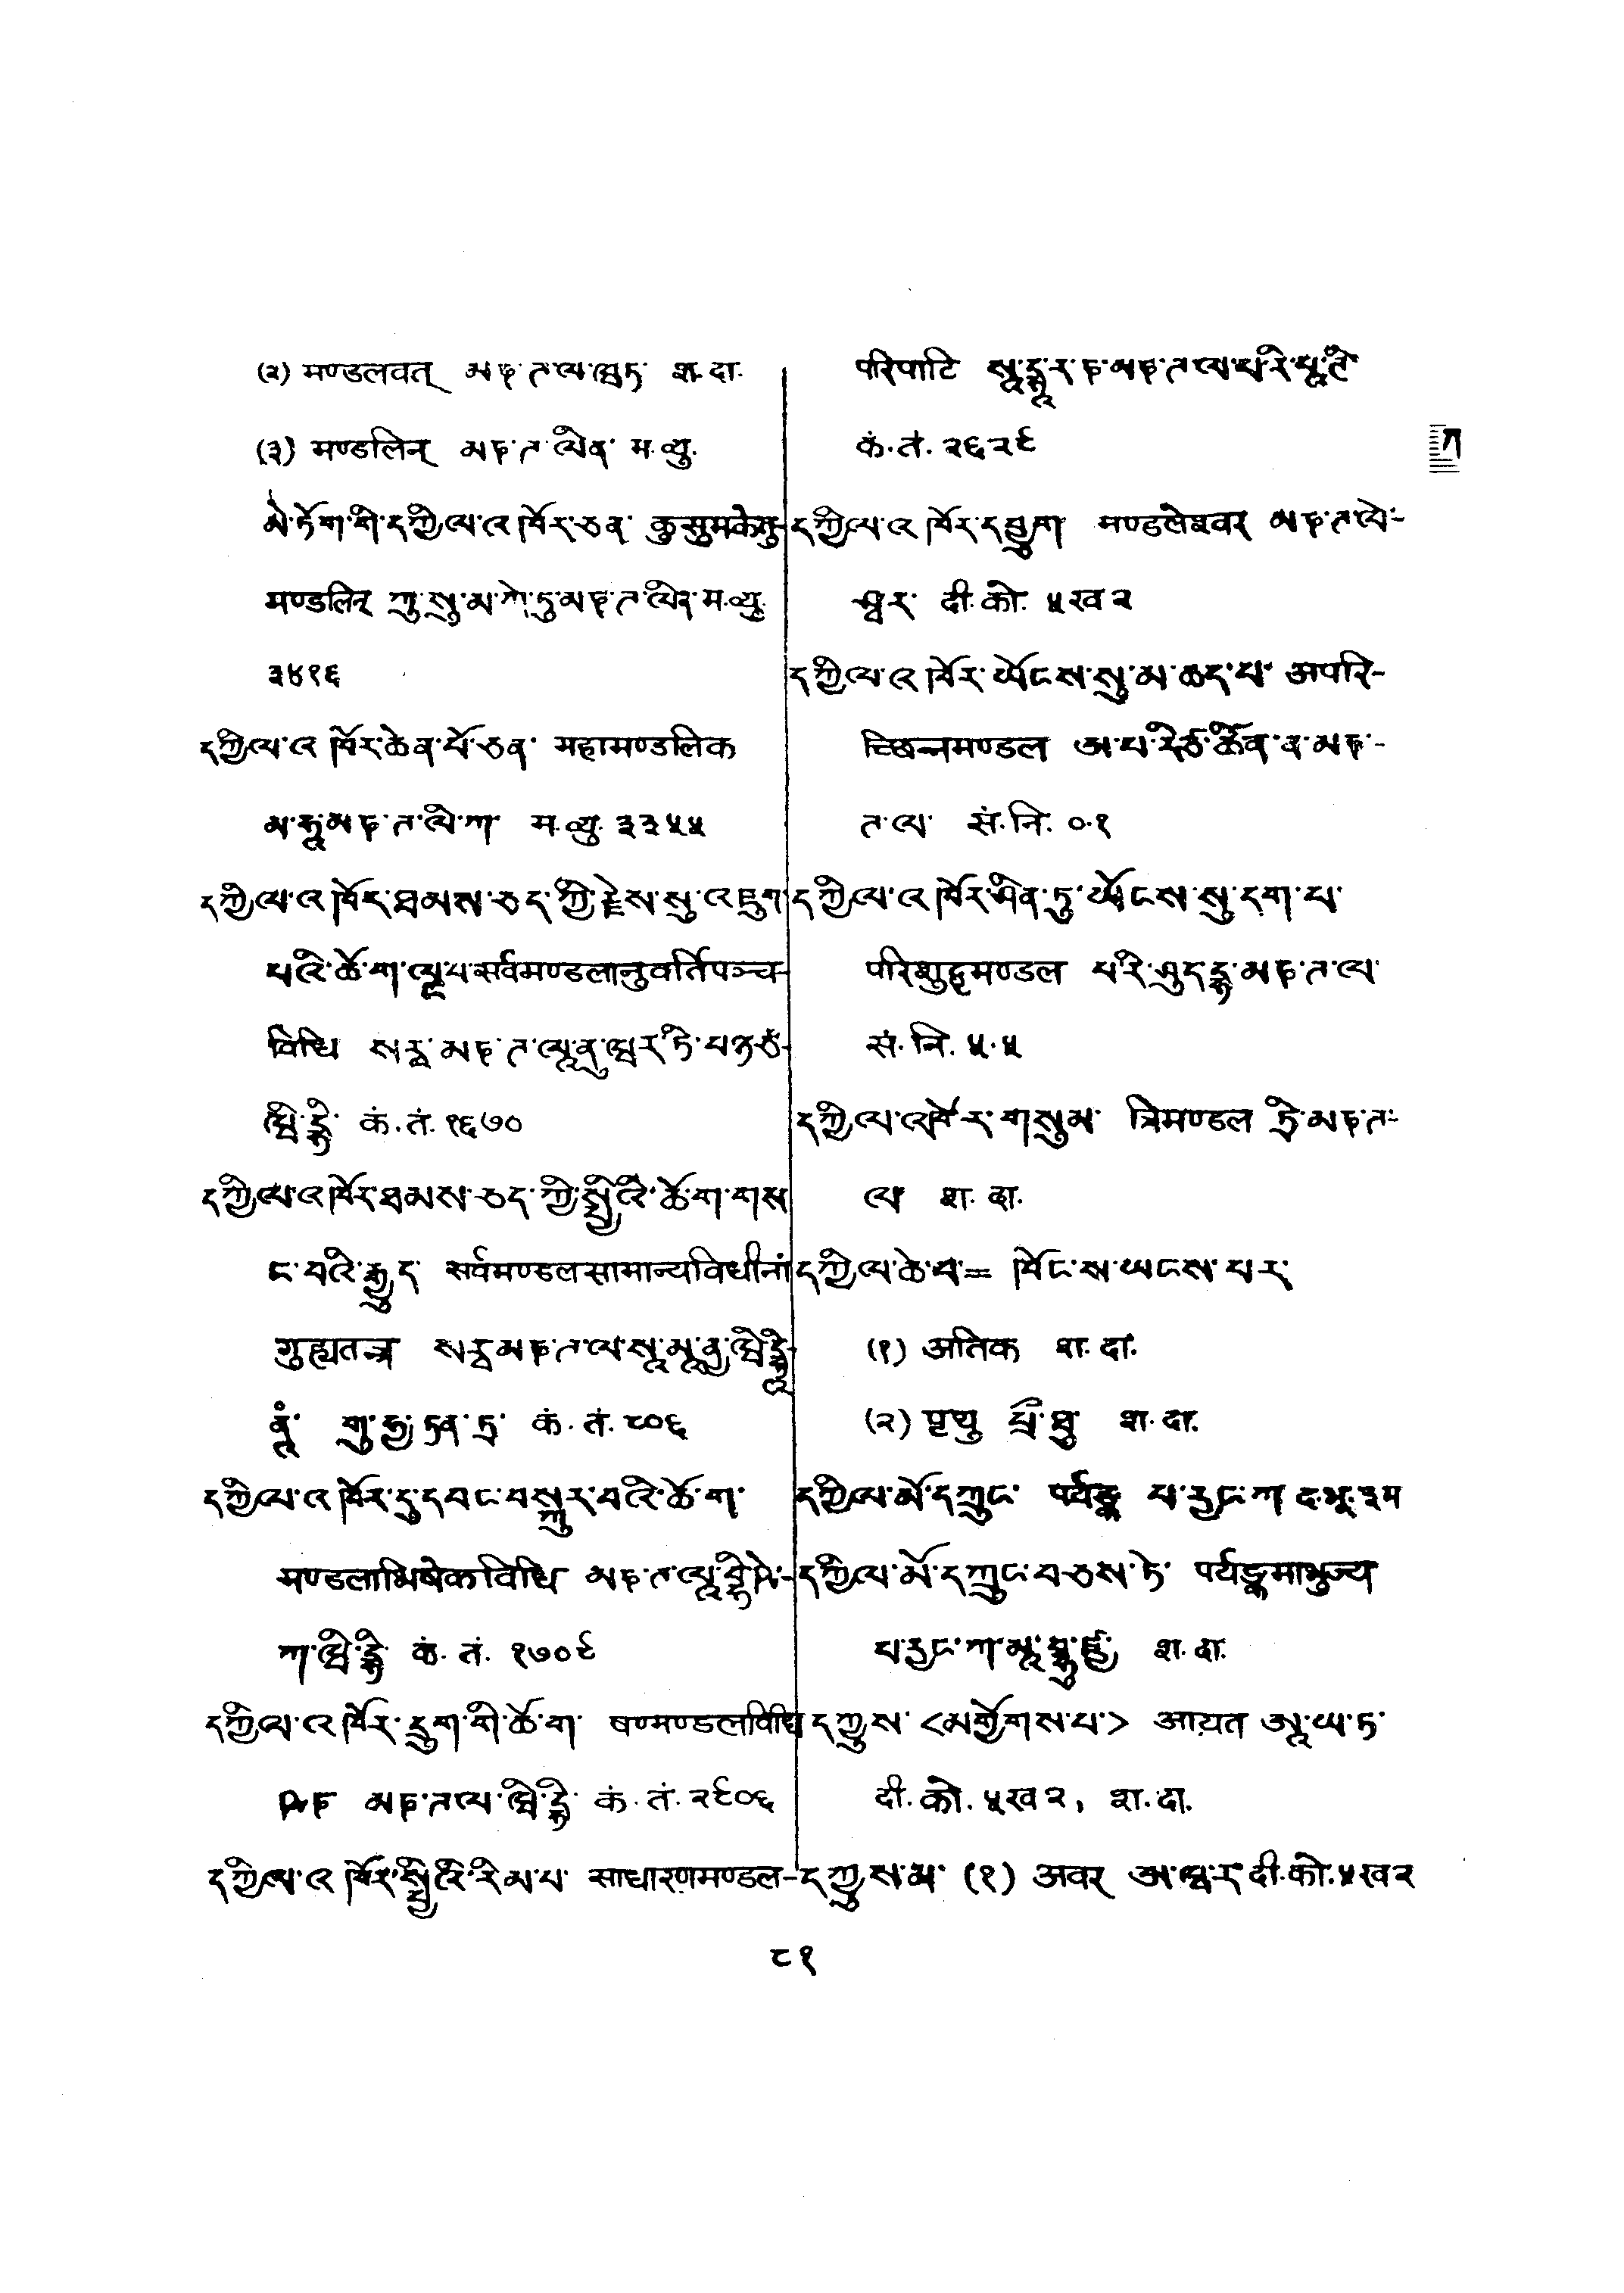 (२) मण्डलवत् མཎ་ཌ་ལ་ཝཏ་ श. दा.
(३) मण्डलिन् མཎ་ཌ་ལིན་ म. व्यु.
མེ་ཏོག་གི་དཀྱིལ་འཁོར་ཅན་ कुसुमकेतु-
मण्डलिन् ཀུ་སུ་མ་ཀེ་ཏུ་མཎ་ཌ་ལིན་ म. व्यु.
३४१६
དཀྱིལ་འཁོར་ཆེན་པོ་ཅན་ महामण्डलिक
མ་ཧཱ་མཎ་ཌ་ལི་ཀ་ म. व्यु. ३३५५
དཀྱིལ་འཁོར་ཐམས་ཅད་ཀྱི་རྗེས་སུ་འཇུག་
པའི་ཆོ་ག་ལྔ་པ་ सर्वमण्डलानुवर्तिपञ्च-
विधि སརྦ་མཎ་ཌ་ལཱ་ནུ་ཝར་ཏི་པཉྩ་
ཝི་དྷི་ कं. तं. १६७०
དཀྱིལ་འཁོར་ཐམས་ཅད་ཀྱི་སྤྱིའི་ཆོ་ག་གས
ང་བའི་རྒྱུད་ सर्वमण्डलसामान्यविधीनां
गुह्यतन्त्र སརྦ་མཎ་ཌ་ལ་སཱ་མཱ་ནྱ་ཝི་དྷཱི་
ནཱཾ་ གུ་ཧྱ་ཏན་ཏྲ་ कं. तं. ८०६
དཀྱིལ་འཁོར་དུ་དབང་བསྐུར་བའི་ཆོ་ག་
मण्डलाभिषेकविधि མཎ་ཌ་ལཱ་བྷི་ཥེ་-
ཀ་ཝི་དྷི་ कं. तं. १७०९
དཀྱིལ་འཁོར་དྲུག་གི་ཆོ་ག་ षण्मण्डलविधि
ཥཎ་ མཎ་ཌ་ལ་ཝི་དྷི་ कं. तं. २९०६
དཀྱིལ་འཁོར་སྤྱིའི་རིམ་པ་ साधारणमण्डल-
परिपाटि སཱ་དྷཱ་ར་ཎ་མཎ་ཌ་ལ་པ་རི་པཱ་ཊི་
कं. तं. २६२९
དཀྱིལ་འཁོར་དབྱུག མण्डलेश्वर མཎ་ཌ་ལེ་-
ཤྭར་ दी. को. ५ख२
དཀྱིལ་འཁོར་ཡོངས་སུ་མ་ཆད་པ་ अपरि-
च्छिन्नमण्डल ཨ་པ་རི་ཙྪིན་ན་མཎ་-
ཌ་ལ་ सं. नि. ०.१
དཀྱིལ་འཁོར་ཤིན་ཏུ་ཡོངས་སུ་དག་པ་
परिशुद्धमण्डल པ་རི་ཤུདྡྷ་མཎ་ཌ་ལ་
सं. नि. ५.५
དཀྱིལ་འཁོར་གསུམ་ त्रिमण्डल ཏྲི་མཎ་ཌ་-
ལ་ श. दा.
དཀྱིལ་ཆེ་བ་= ཁོང་ས་ཡངས་པར་
(१) अतिक श. दा.
(२) पृथु པྲྀ་ཐུ་ श. दा.
དཀྱིལ་མོ་དཀྲུང་ पर्यङ्क པ་རྱང་ཀ द. भू. ३म
དཀྱིལ་མོ་དཀྲུང་བཅས་ཏེ་ पर्यङ्कमाभुज्य
པ་རྱང་ཀ་མཱ་བྷུ་ཛྱ་ श. दा.
དཀྱུས་ <མགྱོགས་པ་> आयत ཨཱ་ཡ་ཏ་
दी. को. ५ख२, श. दा.
དཀྱུས་མ་ (१) अवर ཨ་ཝ་ར་ दी. को. ५ख२
८१